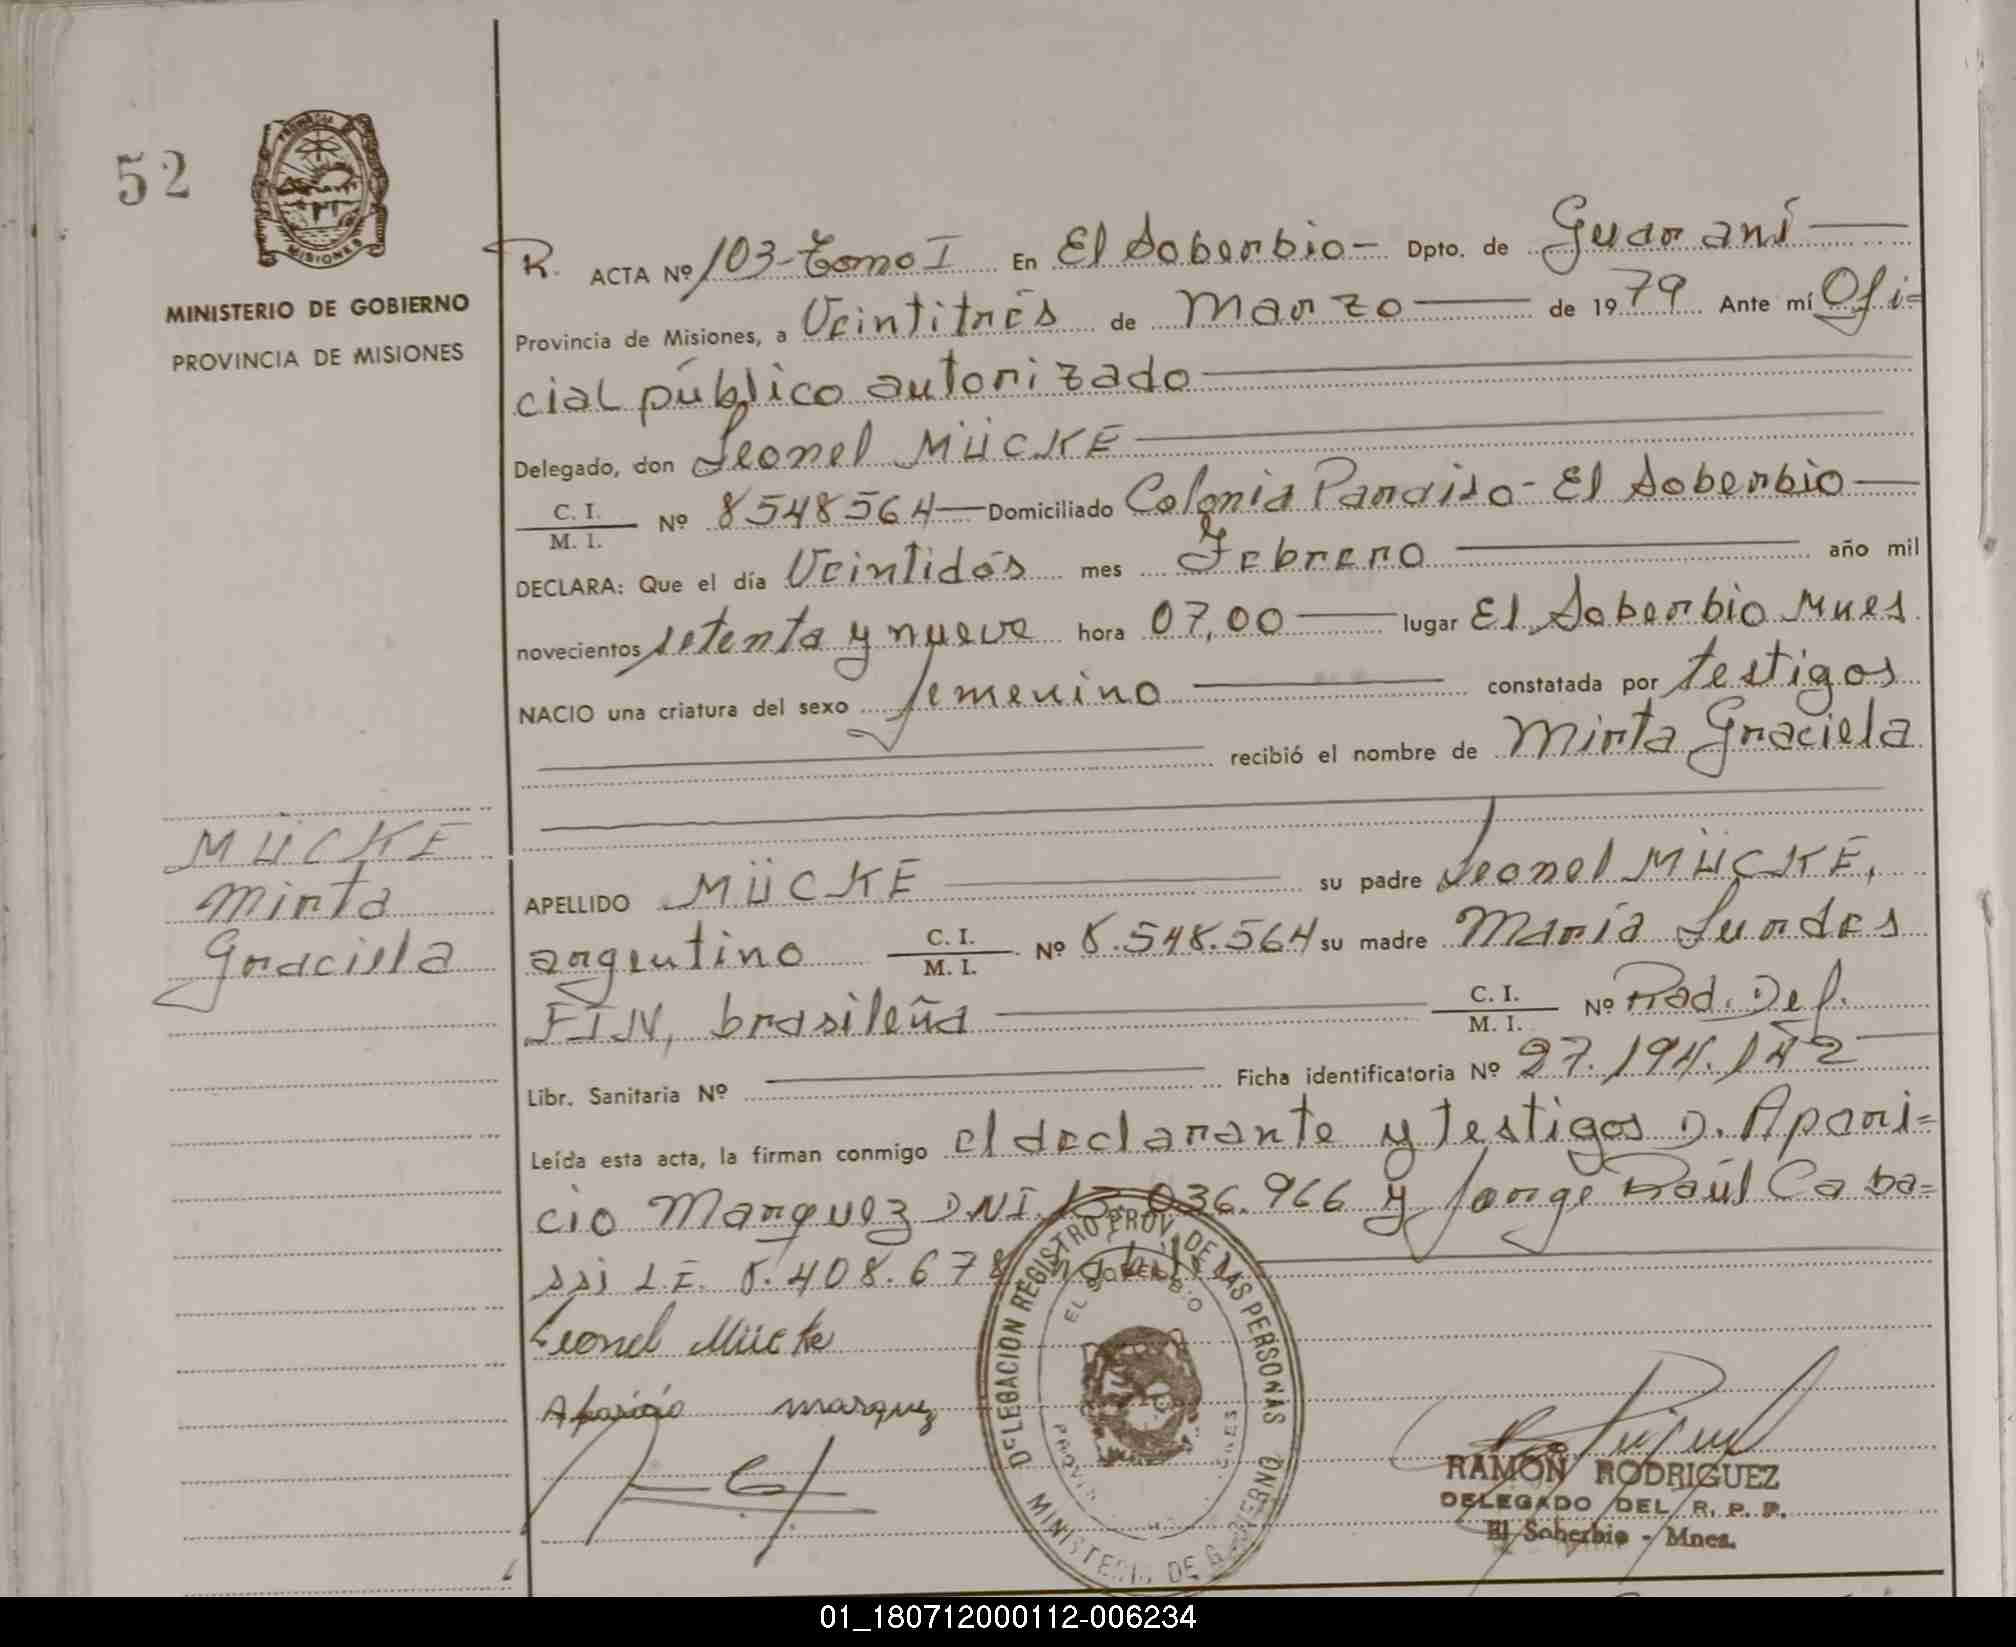 52
PROVINCIA
MISIONES
MINISTERIO DE GOBIERNO
PROVINCIA DE MISIONES
R. ACTA Nº 103-Tomo I En El Soberbio- Dpto. de Guaraní
Provincia de Misiones, a Veintitrés de Marzo de 1979 Ante mí Ofi=
cial público autorizado
Delegado, don Leonel MÜCKE
C. I.
M. I. Nº 8548564 Domiciliado Colonia Paraiso- El Soberbio
DECLARA: Que el día Veintidós mes Febrero año mil
novecientos setenta y nueve hora 07,00 lugar El Soberbio Mnes
NACIO una criatura del sexo femenino constatada por testigos
recibió el nombre de Mirta Graciela
MÜCKE
Mirta
Graciela
APELLIDO MÜCKE su padre Leonel MÜCKE,
argentino C. I.
M. I. Nº 8.548.564 su madre María Lurdes
FIN, brasileña C. I.
M. I. Nº Rad. Def.
Libr. Sanitaria Nº Ficha identificatoria Nº 27.194.142
Leída esta acta, la firman conmigo el declarante y testigos D. Apari=
cio Marquez DNI. 13.036.966 y Jorge Raúl Caba=
ssi L.E. 8.408.678 habil
Leonel Mücke
Aparicio marquez
DELEGACION REGISTRO PROV. DE LAS PERSONAS
EL SOBERBIO
MINISTERIO DE GOBIERNO
RAMON RODRIGUEZ
DELEGADO DEL R. P. P.
El Soberbio - Mnes.
01_180712000112-006234